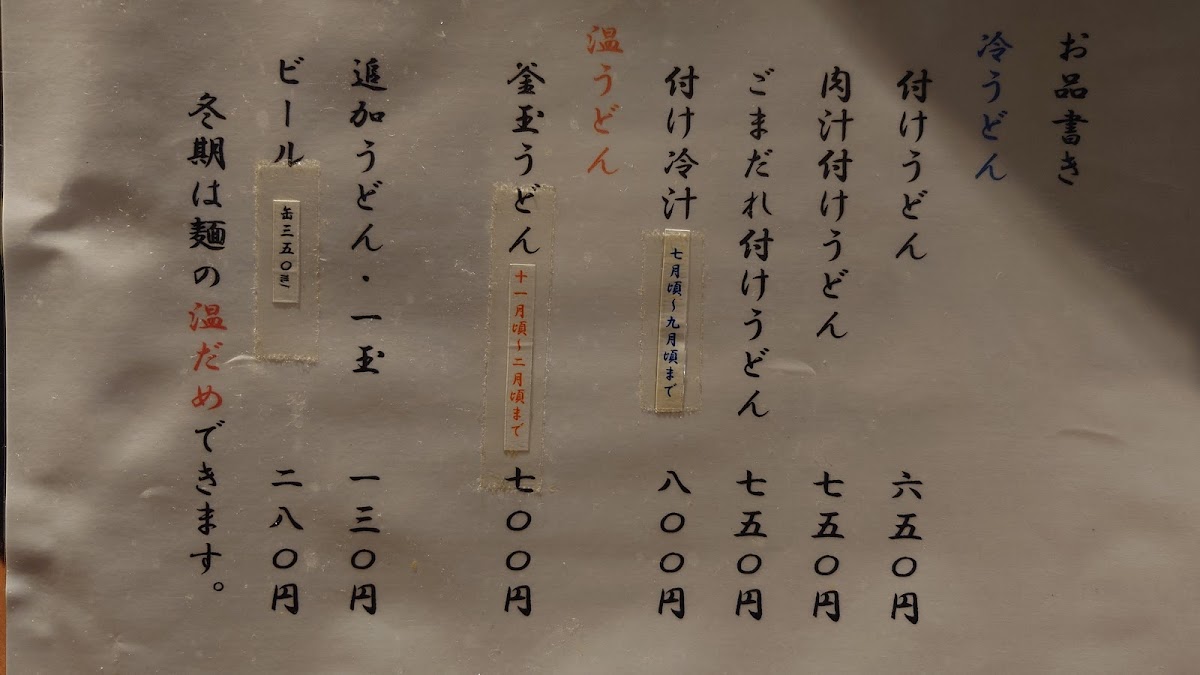 お品書き
冷うどん
付けうどん 六五〇円
肉汁付けうどん 七五〇円
ごまだれ付けうどん 七五〇円
付け冷汁 七月頃〜九月頃まで 八〇〇円
温うどん
釜玉うどん 十一月頃〜二月頃まで 七〇〇円
追加うどん・一玉 一三〇円
ビール 缶三五〇㍉ 二八〇円
冬期は麺の温だめできます。